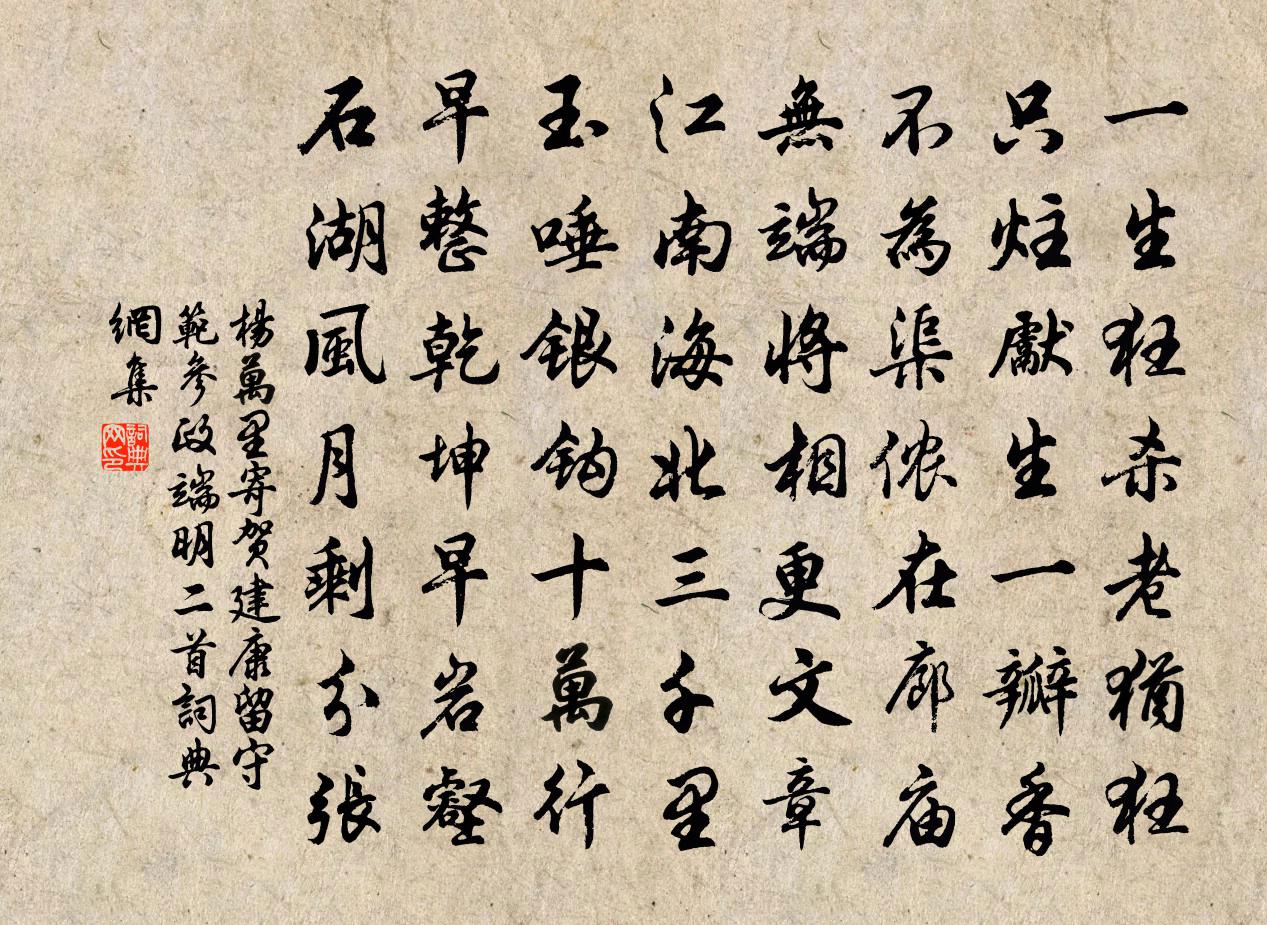 一生狂杀老猶狂
只炷獻生一瓣香
不為渠侬在廊庙
無端将相更文章
江南海北三千里
玉唾银钩十萬行
早整乾坤早岩壑
石湖風月剩分張
楊萬里寄贺建康留守
範参政端明二首詞典
網集
詞典网印